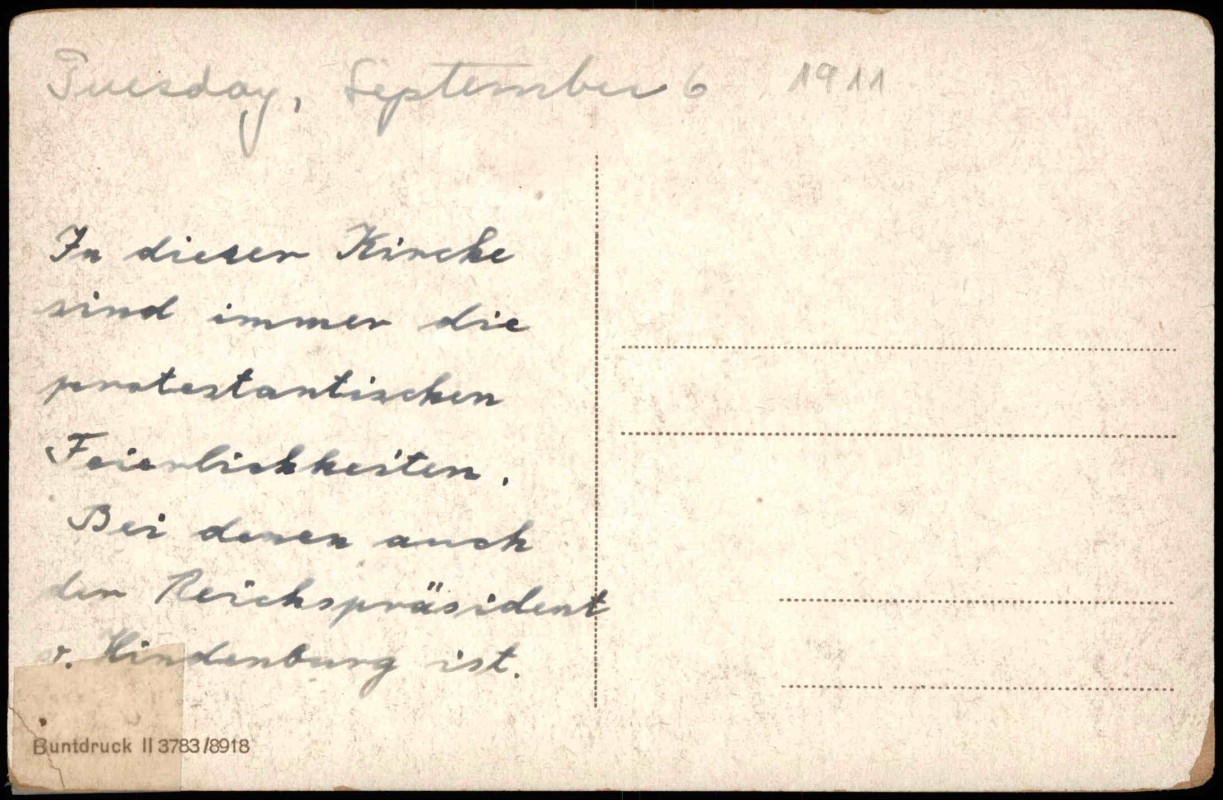 Tuesday, September 6 1911
In dieser Kirche
sind immer die
protestantischen
Feierlichkeiten.
Bei denen auch
der Reichspräsident
v. Hindenburg ist.
Buntdruck II 3783/8918